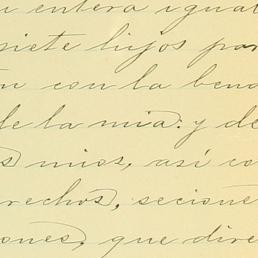 entera igual
siete hijos par
n con la bend
de la mia: y de
s mios, así co
rechos, secione
ones, que dire